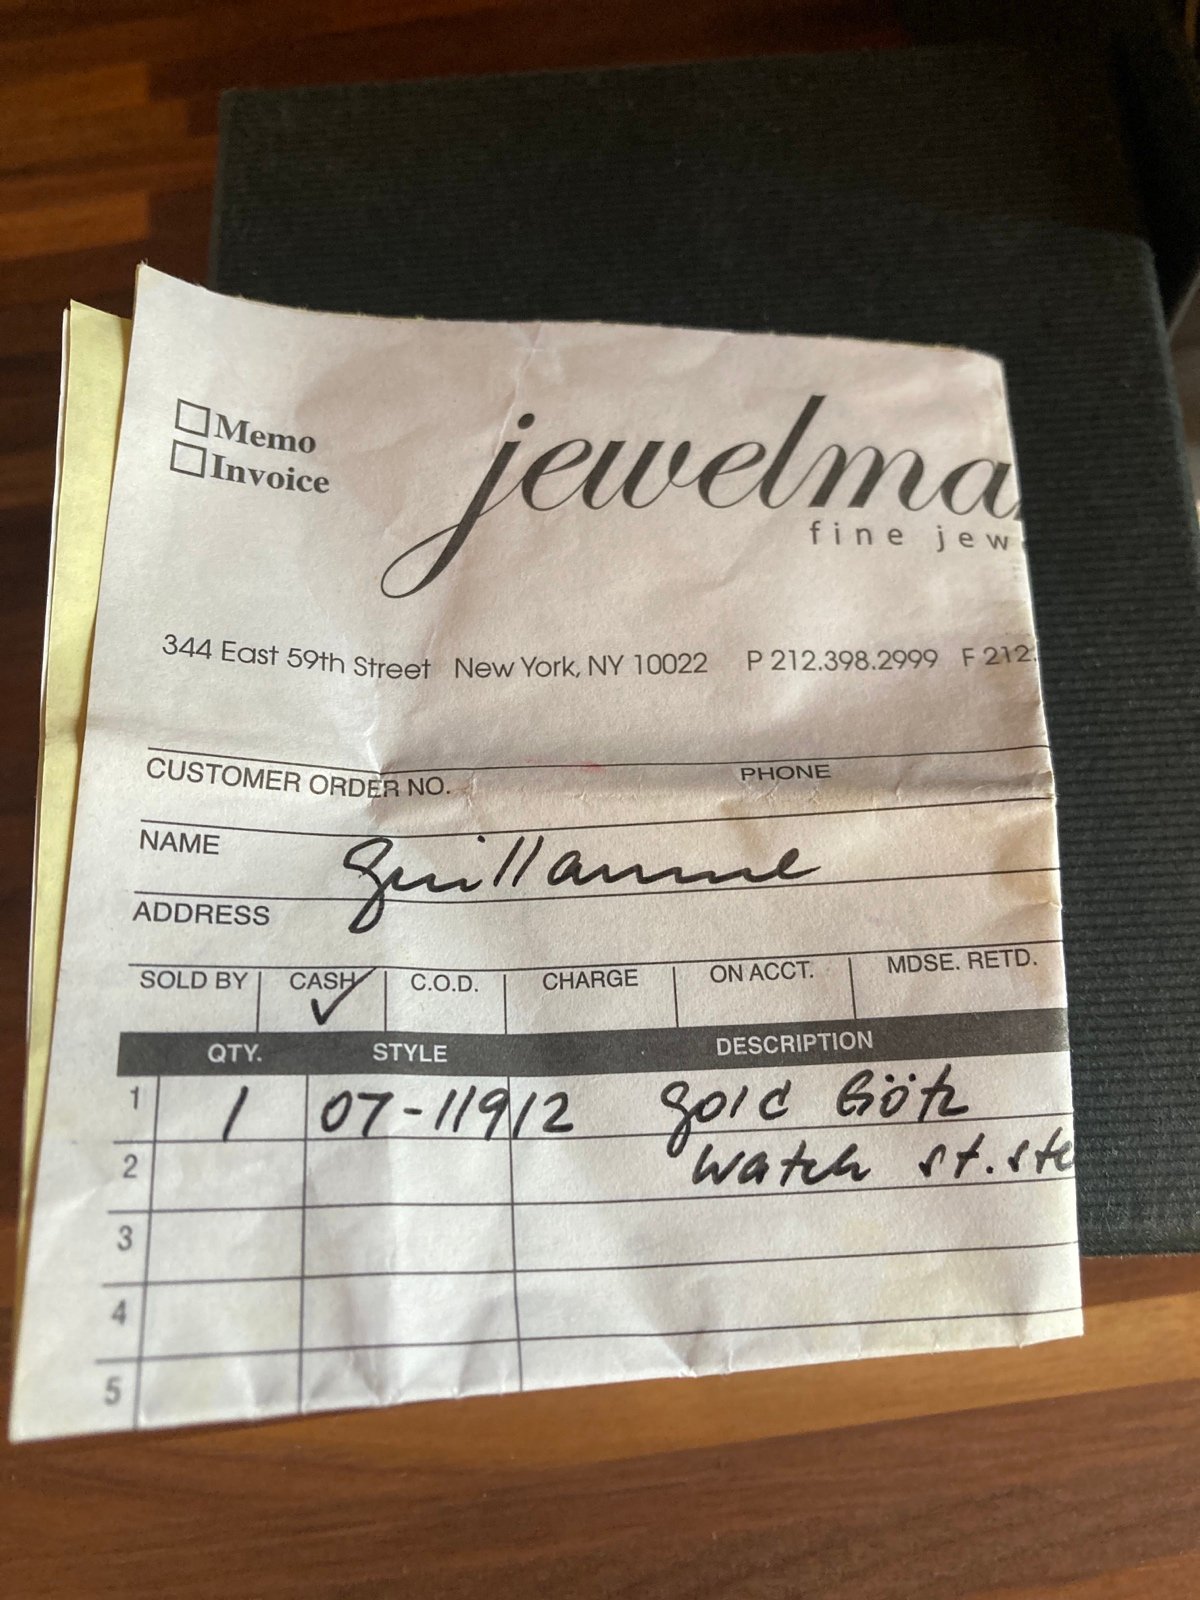 Memo
Invoice
jewelma
fine jew
344 East 59th Street New York, NY 10022 P 212.398.2999 F 212.
CUSTOMER ORDER NO. PHONE
NAME Guillaume
ADDRESS
SOLD BY CASH C.O.D. CHARGE ON ACCT. MDSE. RETD.
QTY. STYLE DESCRIPTION
1 1 07-11912 gold Götz
2 watch st.ste
3
4
5